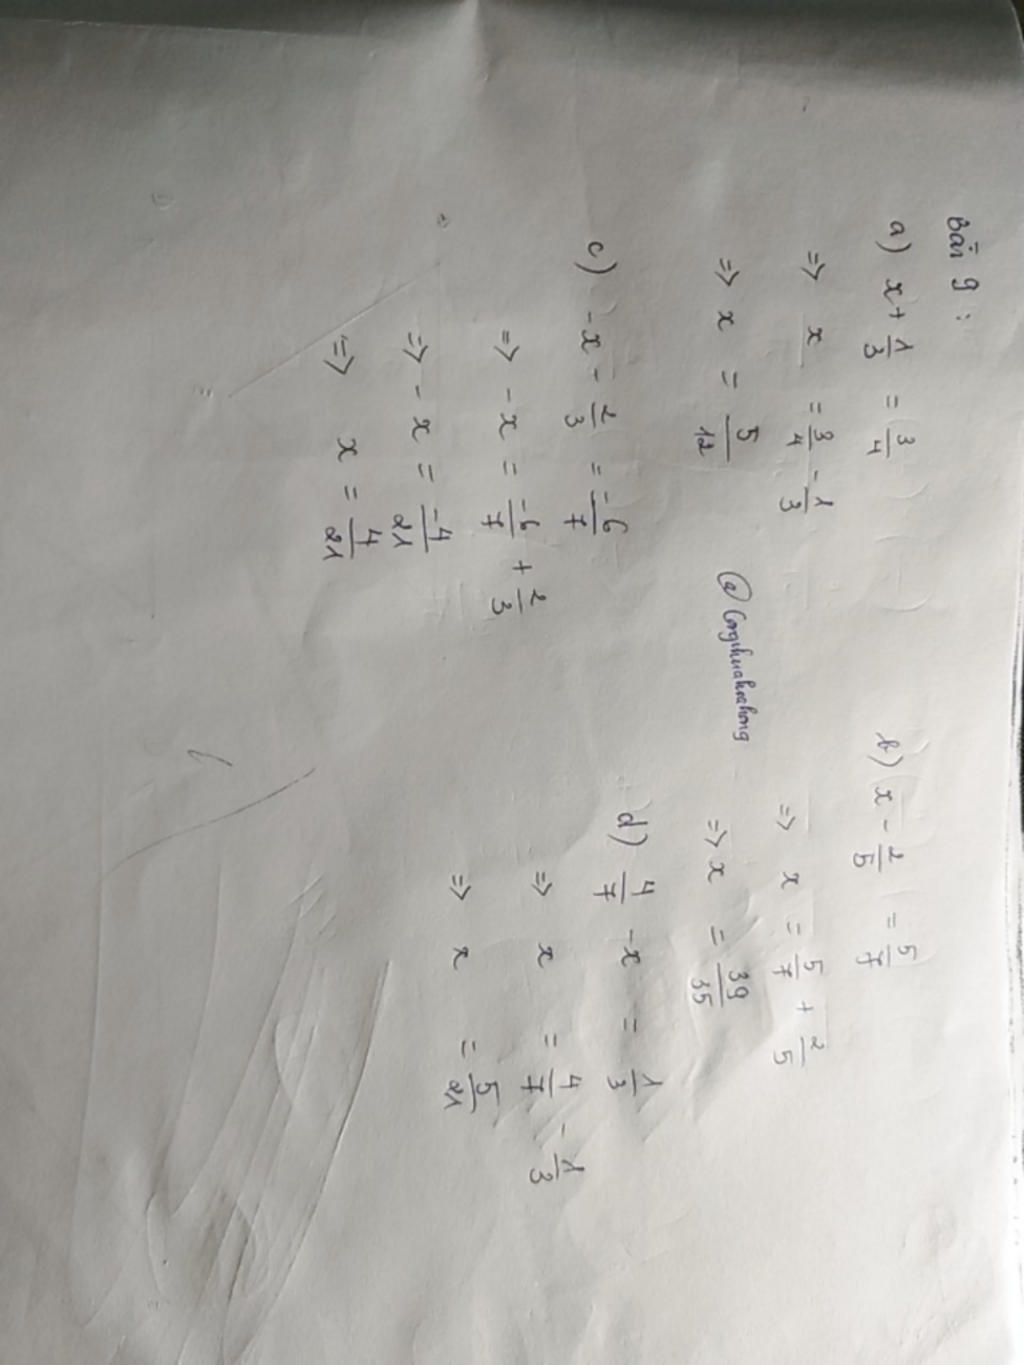 Bài 9 :
a) x + 1/3 = 3/4
=> x = 3/4 - 1/3
=> x = 5/12
b) x - 2/5 = 5/7
=> x = 5/7 + 2/5
=> x = 39/35
c) -x - 2/3 = -6/7
=> -x = -6/7 + 2/3
=> -x = -4/21
=> x = 4/21
d) 4/7 - x = 1/3
=> x = 4/7 - 1/3
=> x = 5/21